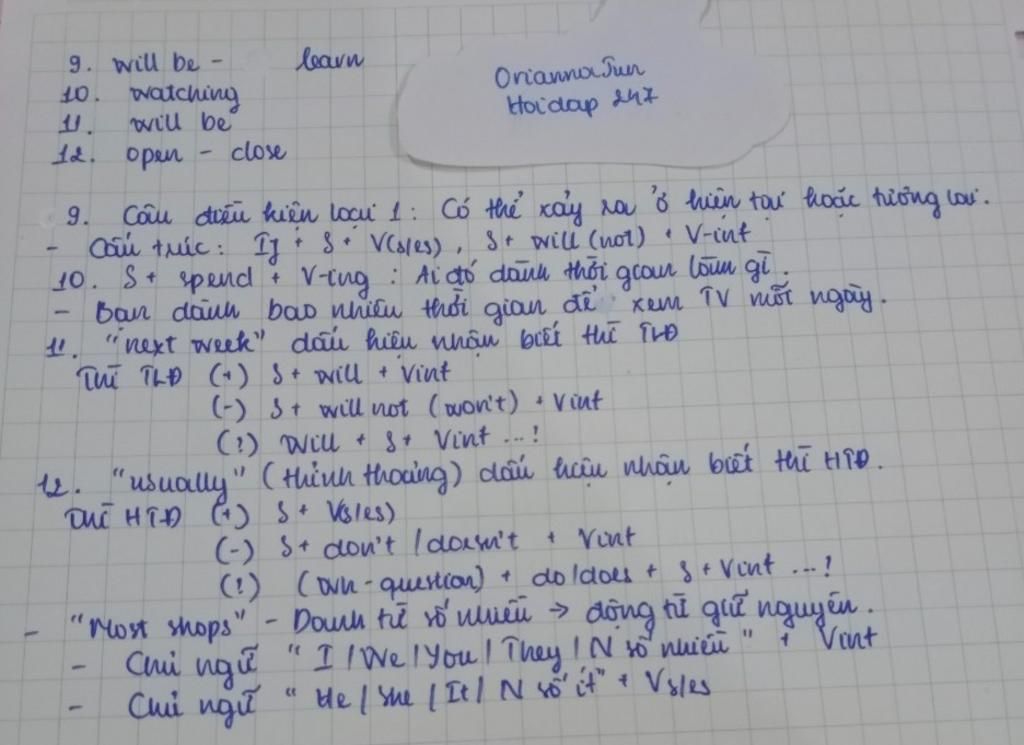 9. will be - learn
10. watching
11. will be
12. open - close
OriannaJun
Hoidap 247
9. Câu điều kiện loại 1: Có thể xảy ra ở hiện tại hoặc tương lai.
- Cấu trúc: If + S + V(s/es), S + will (not) + V-inf
10. S + spend + V-ing : Ai đó dành thời gian làm gì.
- Bạn dành bao nhiêu thời gian để xem TV mỗi ngày.
11. "next week" dấu hiệu nhận biết thì TLĐ
Thì TLĐ (+) S + will + Vinf
(-) S + will not (won't) + Vinf
(?) Will + S + Vinf ...?
12. "usually" (thỉnh thoảng) dấu hiệu nhận biết thì HTĐ.
Thì HTĐ (+) S + V(s/es)
(-) S + don't / doesn't + Vinf
(?) (Wh-question) + do/does + S + Vinf ...?
- "Most shops" - Danh từ số nhiều → động từ giữ nguyên.
- Chủ ngữ "I / We / You / They / N số nhiều" + Vinf
- Chủ ngữ "He / She / It / N số ít" + Vs/es